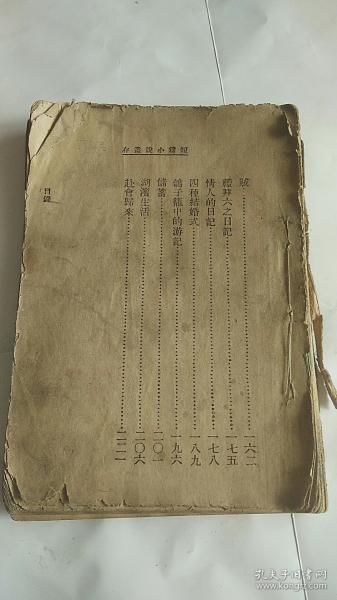 小說
存
賊……一六二
禮拜六之日記……一七五
情人的日記……一七八
四種結婚式……一八九
鴿子籠中的游記……一九六
儲蓄……二〇一
湖濱生活……二〇六
赴會歸來……二一一
目錄
孔夫子旧书网